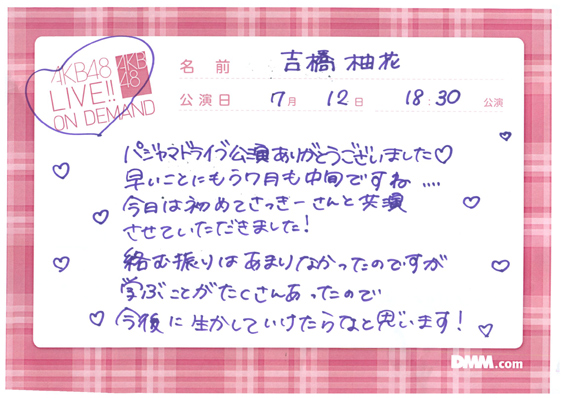 AKB48
LIVE!!
ON DEMAND
AKB
48
名前 吉橋柚花
公演日 7月 12日 18:30 公演
パジャマドライブ公演ありがとうございました♡
早いことにもう7月も中旬ですね....
今日は初めてさっきーさんと共演
させていただきました!
絡む振りはあまりなかったのですが
学ぶことがたくさんあったので
今後に生かしていけたらなと思います!
DMM.com